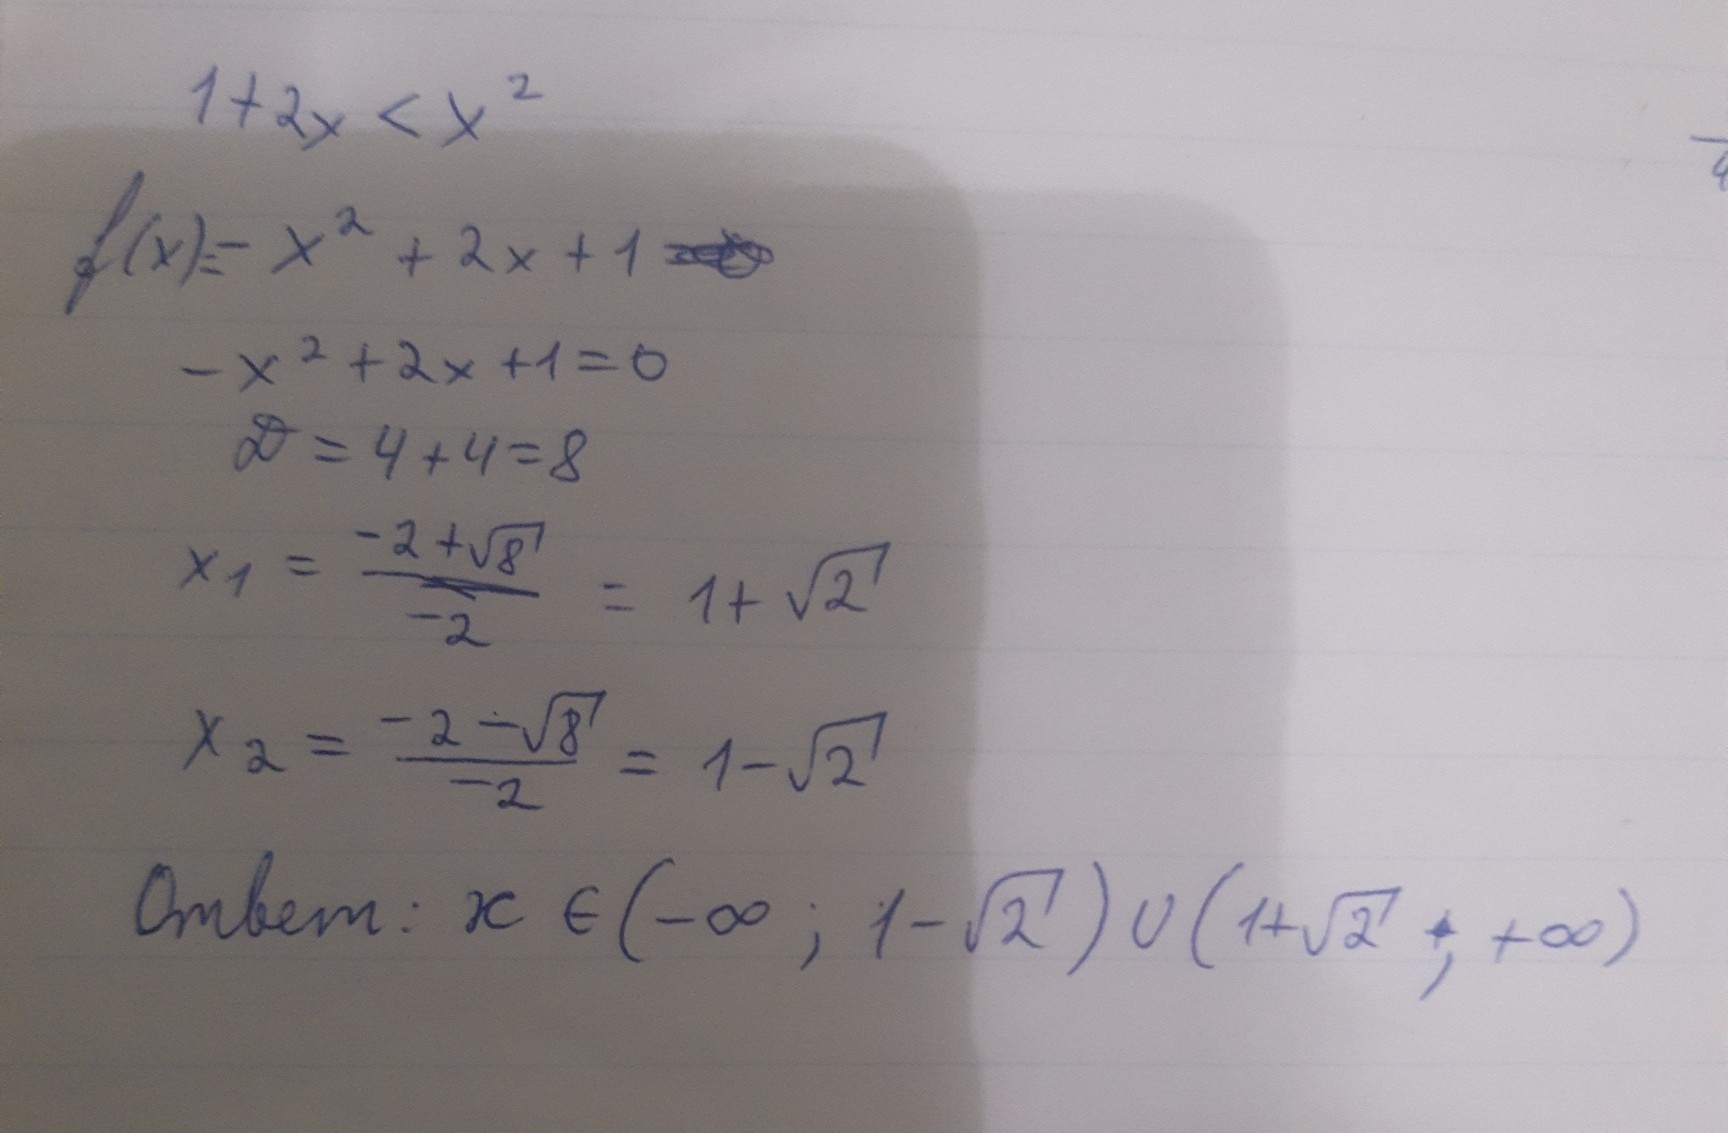 1+2x < x²
f(x)= -x² + 2x + 1
-x² + 2x + 1 = 0
D = 4 + 4 = 8
x₁ = (-2+√8)/(-2) = 1+√2
x₂ = (-2-√8)/(-2) = 1-√2
Ответ: x ∈ (-∞ ; 1-√2) ∪ (1+√2 ; +∞)